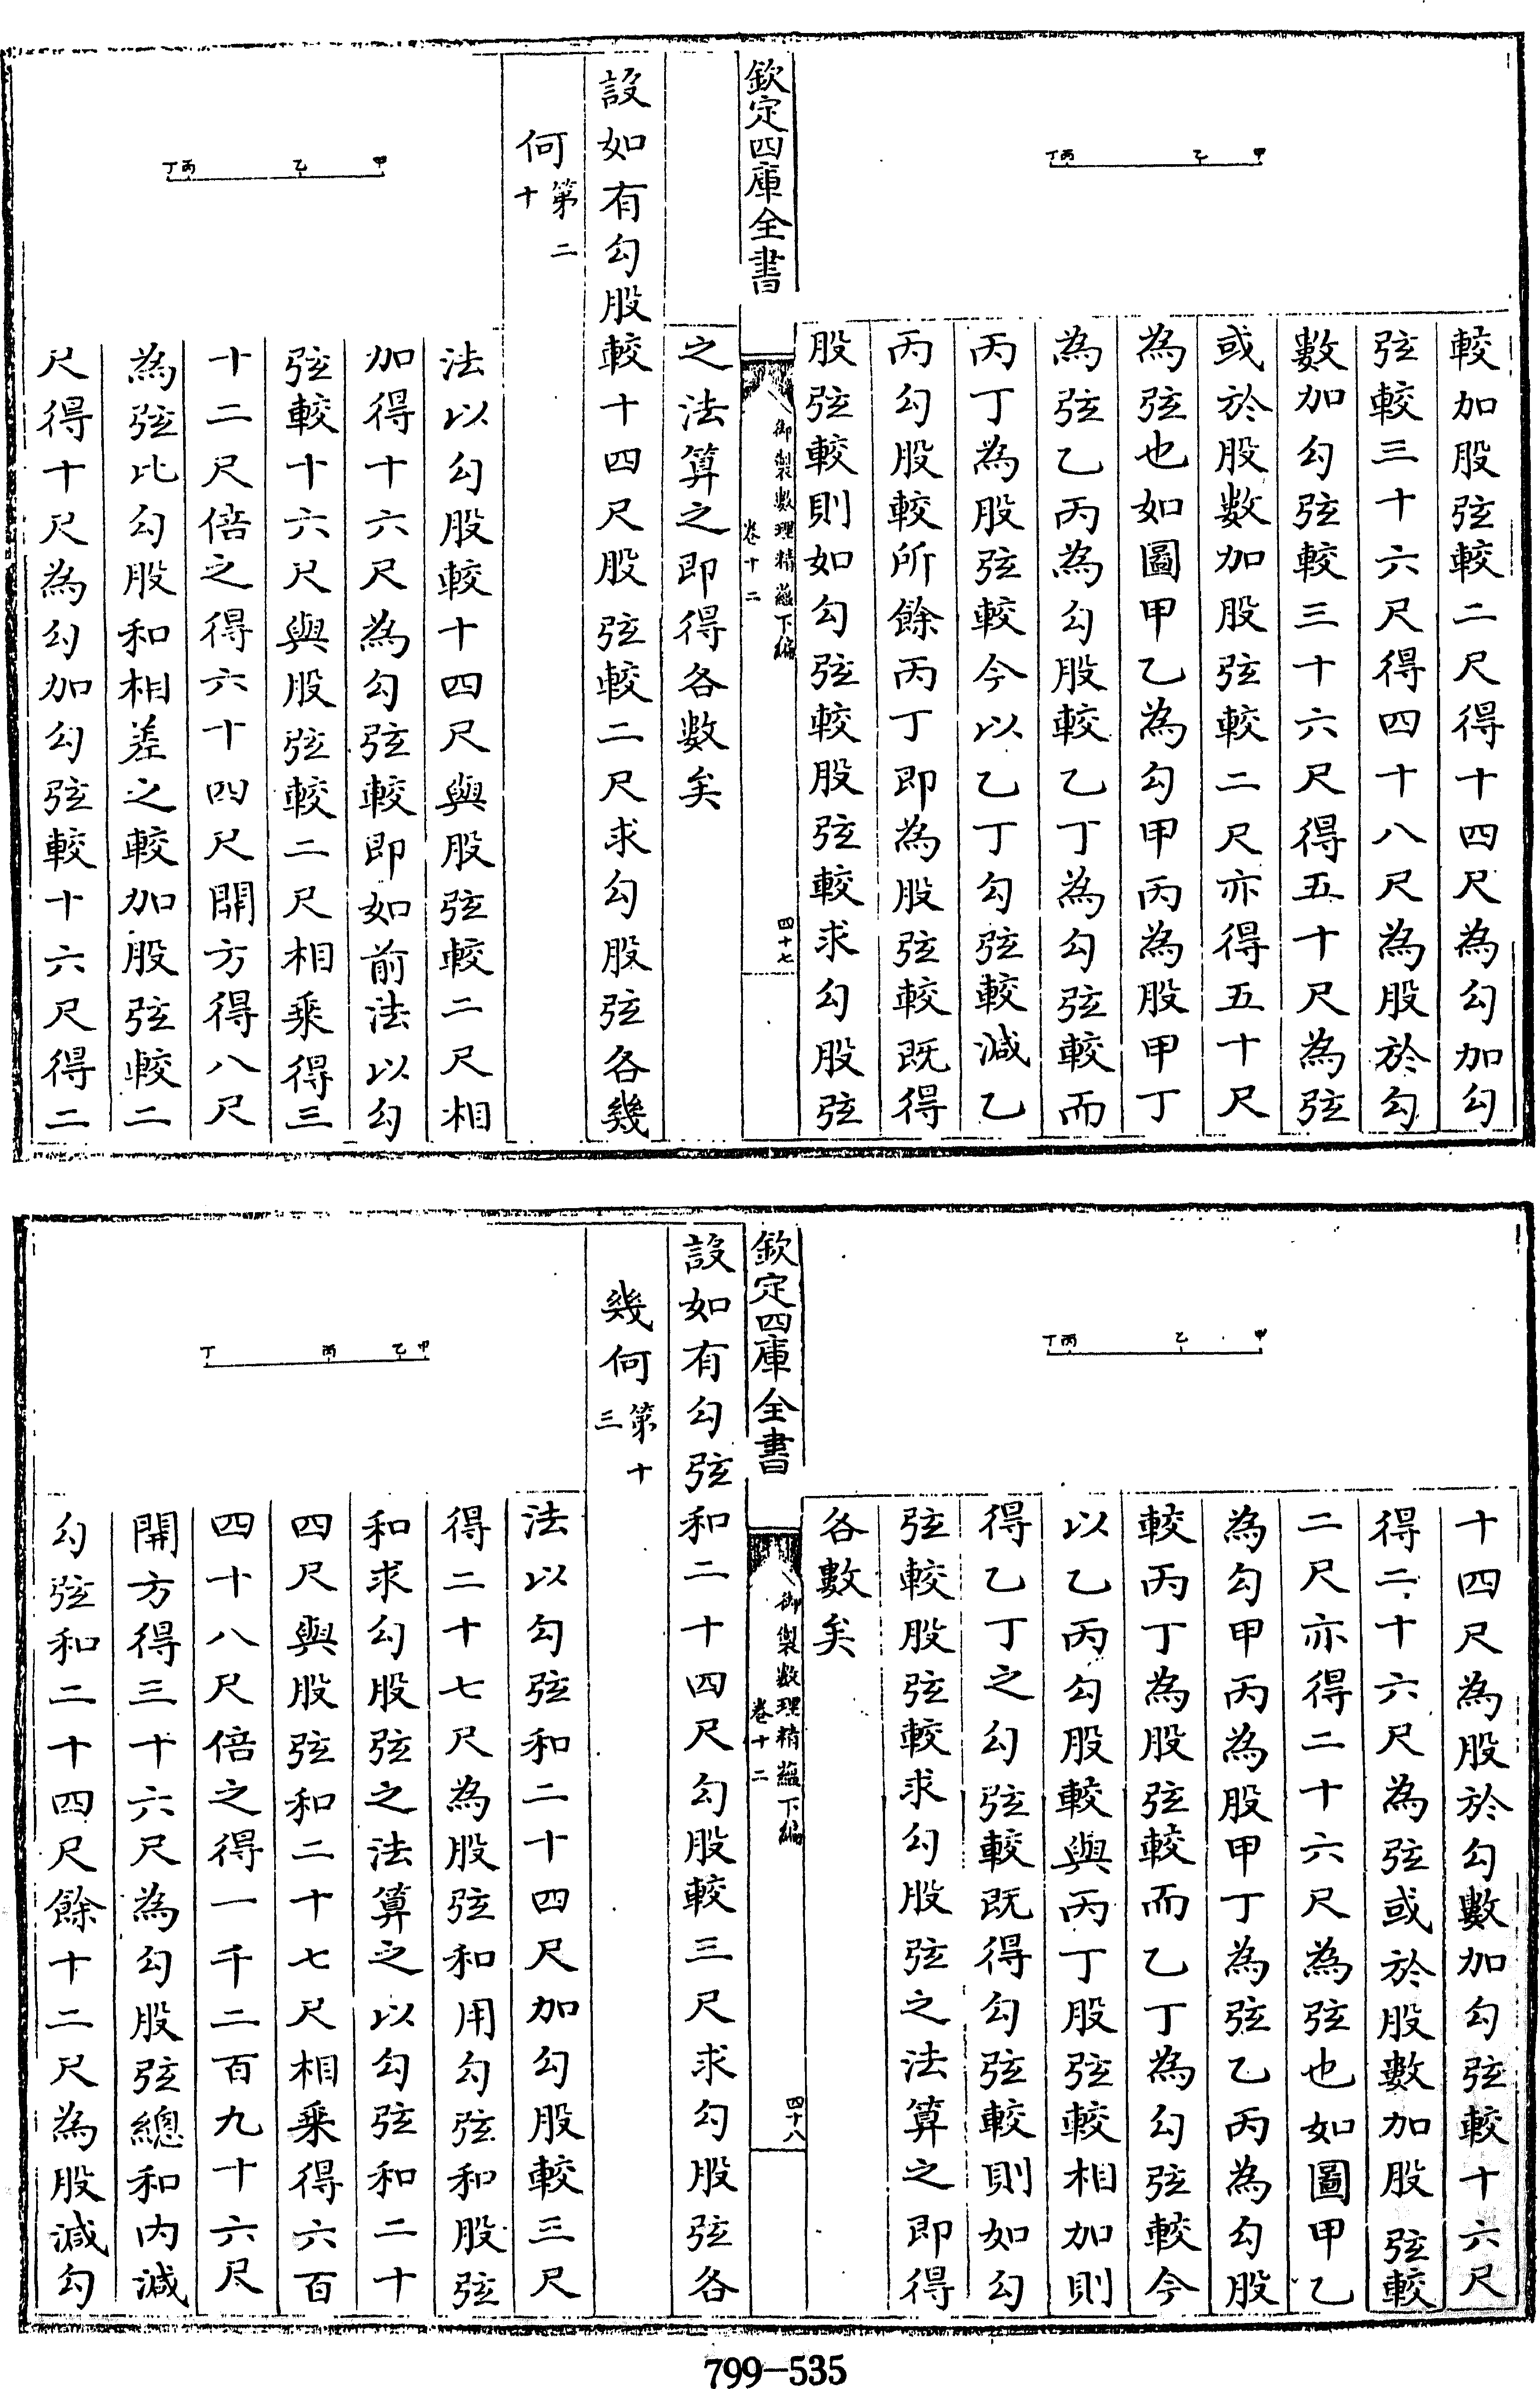 較加股弦較二尺得十四尺為勾加勾
弦較三十六尺得四十八尺為股於勾
數加勾弦較三十六尺得五十尺為弦
或於股數加股弦較二尺亦得五十尺
為弦也如圖甲乙為勾甲丙為股甲丁
為弦乙丙為勾股較乙丁為勾弦較而
丙丁為股弦較今以乙丁勾弦較減乙
丙勾股較所餘丙丁即為股弦較既得
股弦較則如勾弦較股弦較求勾股弦
甲
乙
丙
丁
欽定四庫全書
御製數理精蘊下編
卷十二
四十七
之法算之即得各數矣
設如有勾股較十四尺股弦較二尺求勾股弦各幾
何第二
十
法以勾股較十四尺與股弦較二尺相
加得十六尺為勾弦較即如前法以勾
弦較十六尺與股弦較二尺相乘得三
十二尺倍之得六十四尺開方得八尺
為弦比勾股和相差之較加股弦較二
尺得十尺為勾加勾弦較十六尺得二
甲
乙
丙
丁
十四尺為股於勾數加勾弦較十六尺
得二十六尺為弦或於股數加股弦較
二尺亦得二十六尺為弦也如圖甲乙
為勾甲丙為股甲丁為弦乙丙為勾股
較丙丁為股弦較而乙丁為勾弦較今
以乙丙勾股較與丙丁股弦較相加則
得乙丁之勾弦較既得勾弦較則如勾
弦較股弦較求勾股弦之法算之即得
各數矣
甲
乙
丙
丁
欽定四庫全書
御製數理精蘊下編
卷十二
四十八
設如有勾弦和二十四尺勾股較三尺求勾股弦各
幾何第十
三
法以勾弦和二十四尺加勾股較三尺
得二十七尺為股弦和用勾弦和股弦
和求勾股弦之法算之以勾弦和二十
四尺與股弦和二十七尺相乘得六百
四十八尺倍之得一千二百九十六尺
開方得三十六尺為勾股弦總和內減
勾弦和二十四尺餘十二尺為股減勾
甲
乙
丙
丁
799-535